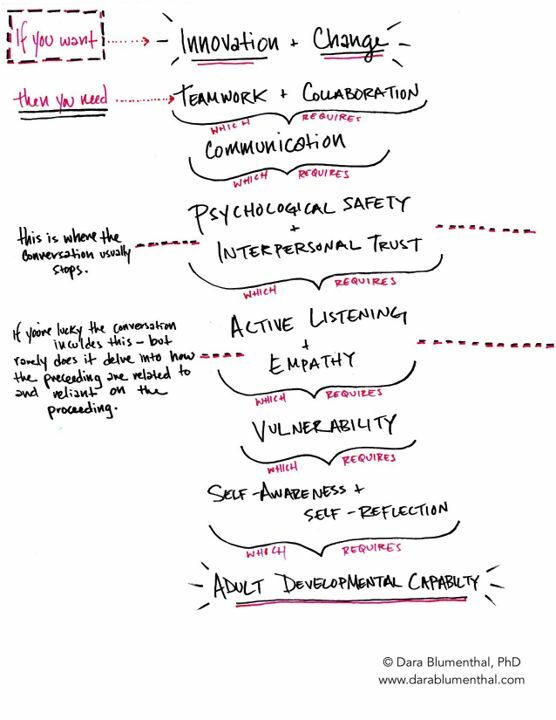 If you want
Innovation + Change
then you need
TEAMWORK + COLLABORATION
WHICH REQUIRES
Communication
WHICH REQUIRES
PSYCHOLOGICAL SAFETY
+
INTERPERSONAL TRUST
this is where the
conversation usually
stops.
WHICH REQUIRES
ACTIVE LISTENING
+
EMPATHY
if you're lucky the conversation
inculdes this - but
rarely does it delve into how
the preceeding are related to
and reliant on the
proceeding.
WHICH REQUIRES
VULNERABILITY
WHICH REQUIRES
SELF-AWARENESS +
SELF-REFLECTION
WHICH REQUIRES
ADULT DEVELOPMENTAL CAPABILTY
© Dara Blumenthal, PhD
www.darablumenthal.com